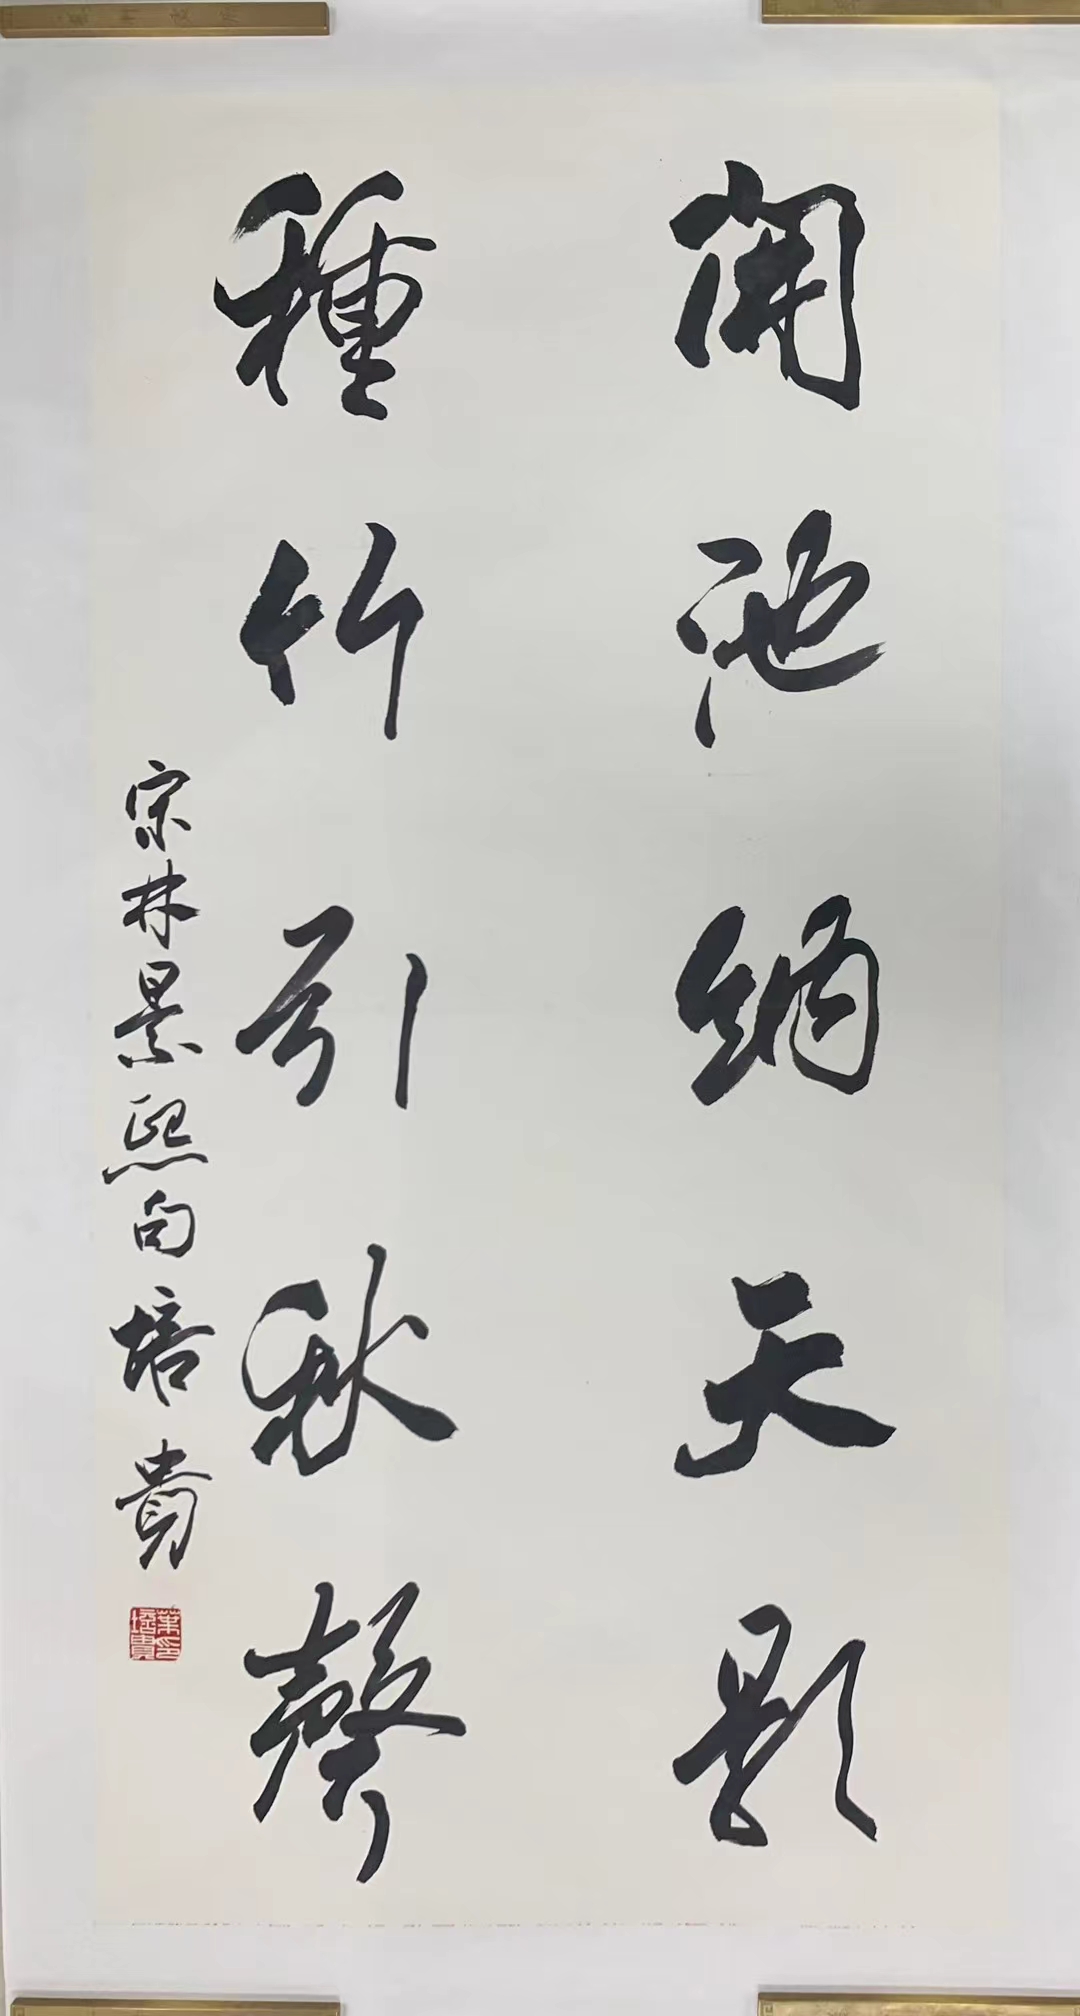 開池納天影
種竹引秋聲
宋林景熙句培貴
葉培貴印